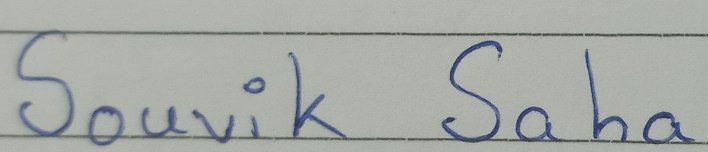 Souvik Saha